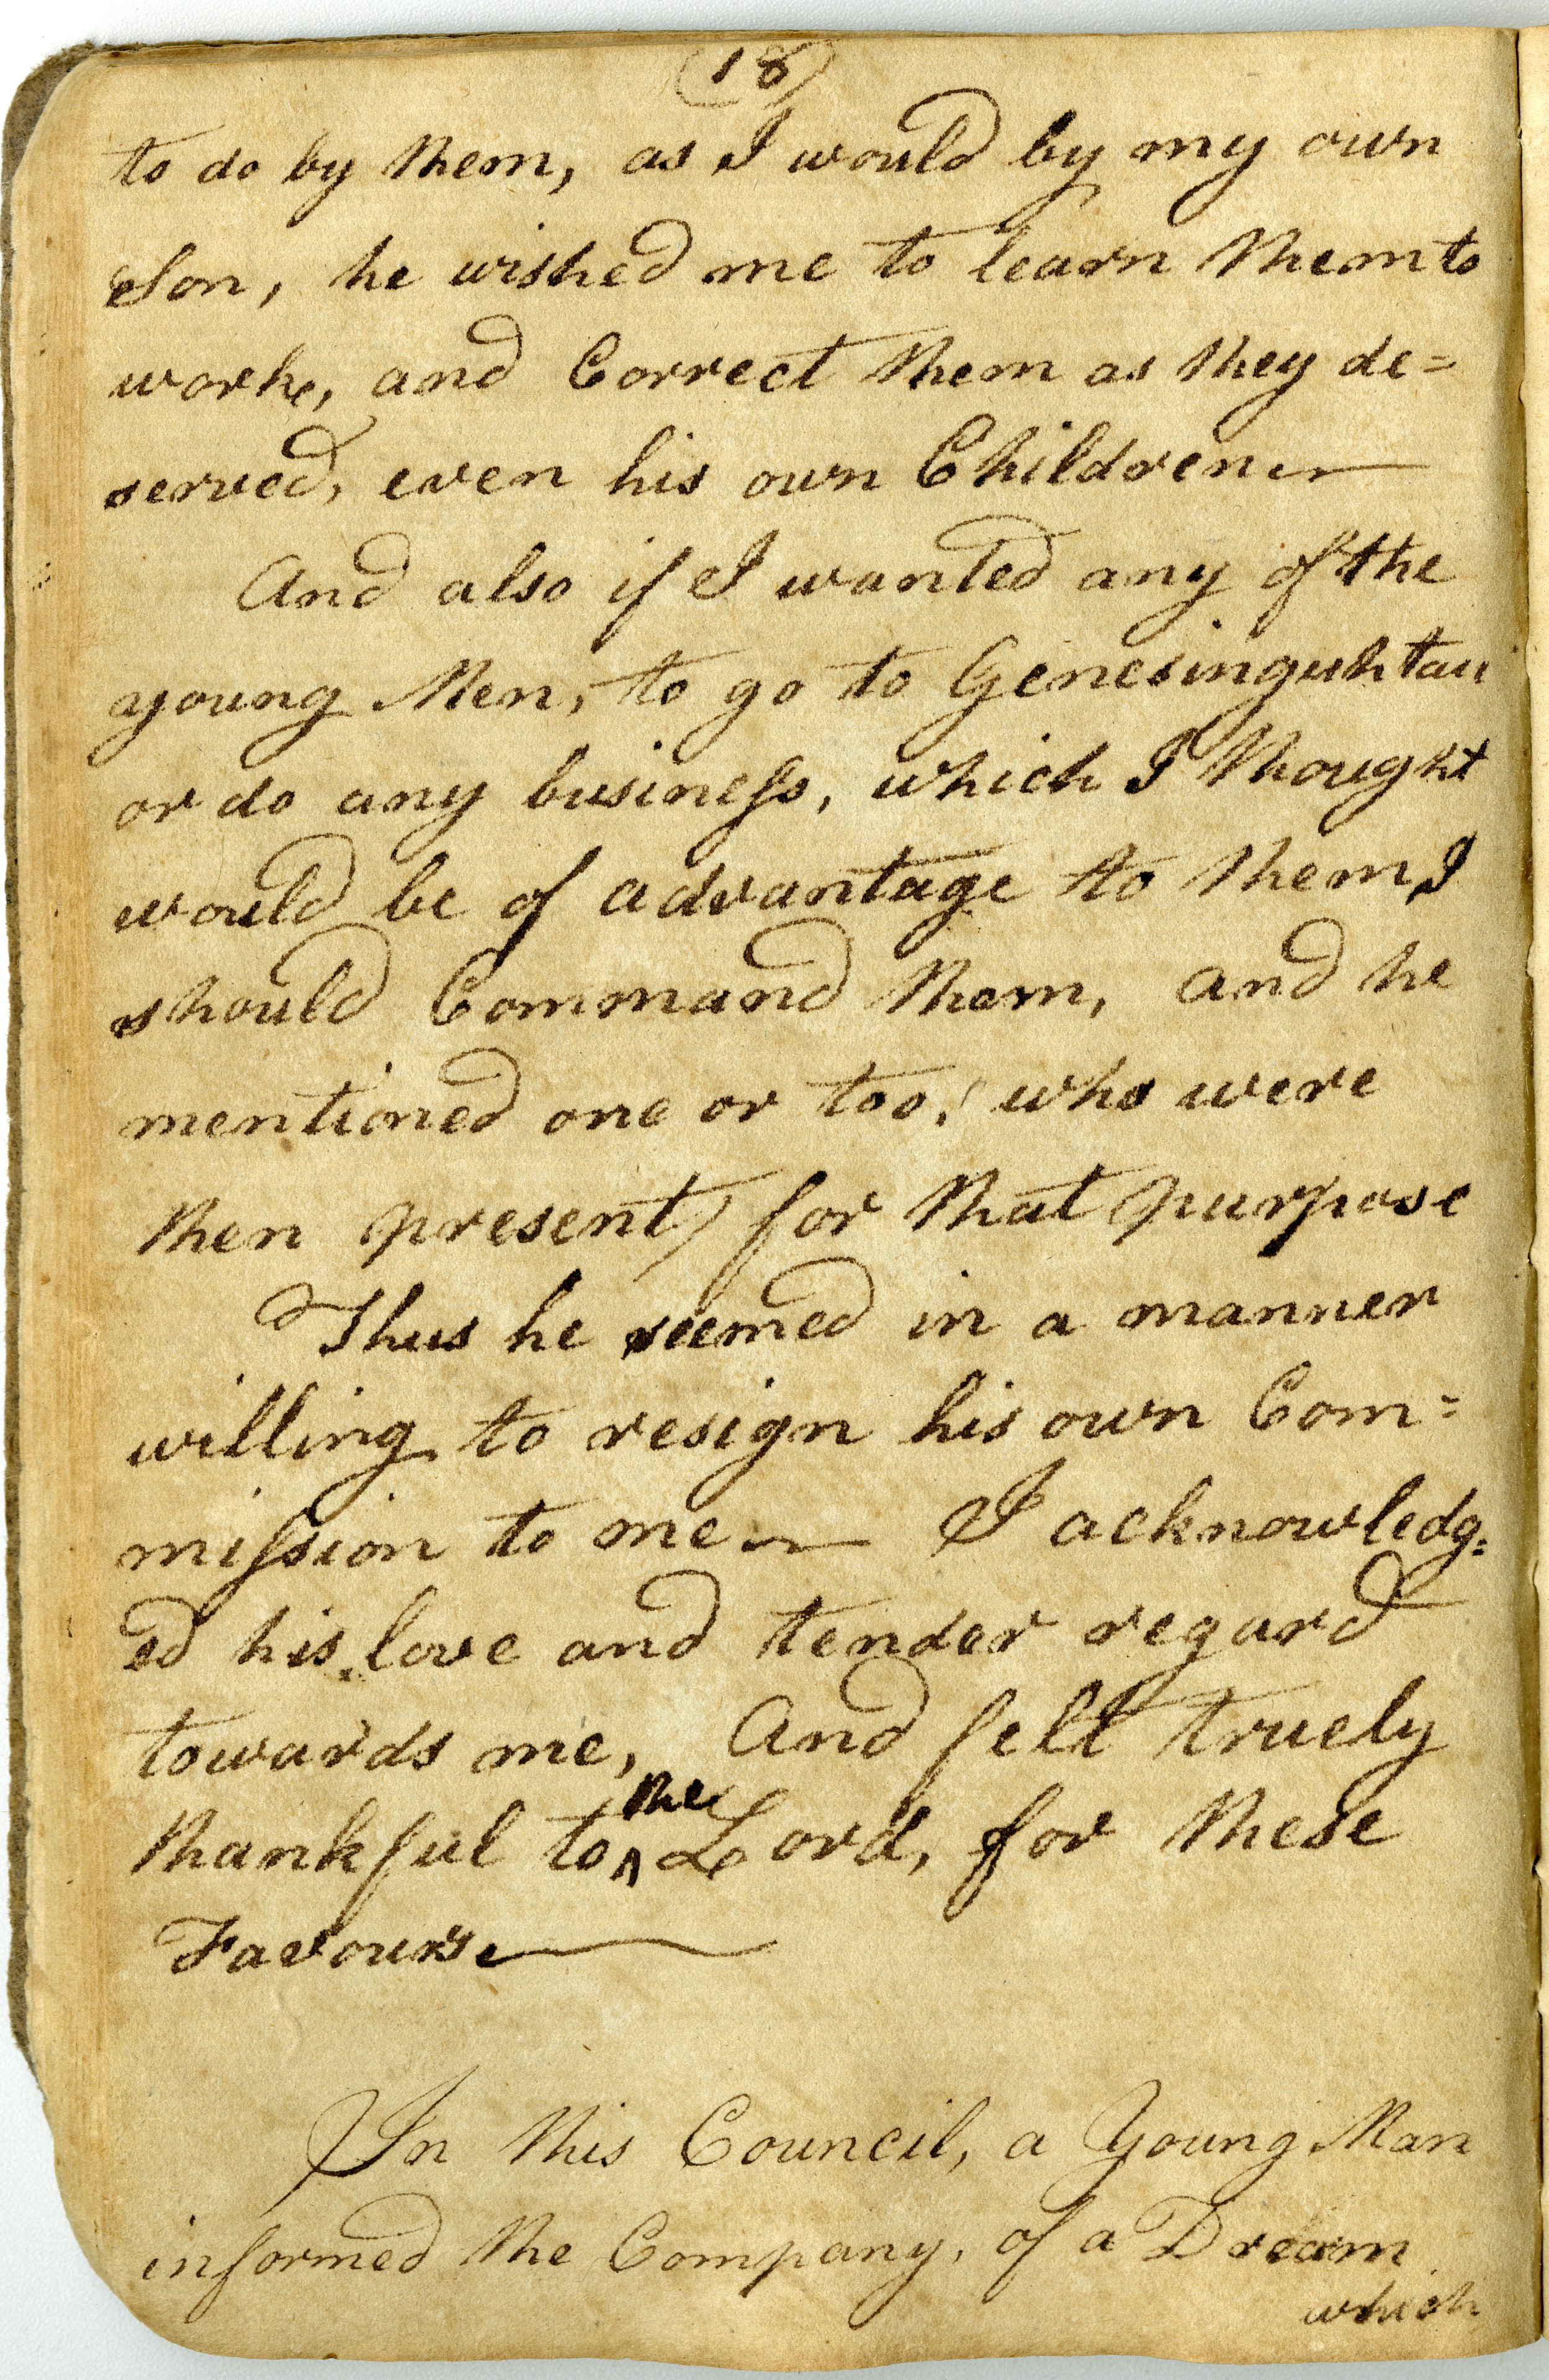 (18)
to do by them, as I would by my own
Son, he wished me to learn them to
worke, and Correct them as they de=
served, even his own Children
And also if I wanted any of the
young Men, to go to Genesinguhtau
or do any business, which I thought
would be of advantage to them, I
should Command them, and he
mentioned one or too, (who were
then present) for that purpose
Thus he seemed in a manner
willing to resign his own Com=
mission to me — I acknowledg=
ed his love and tender regard
towards me, And felt truely
the
thankful to ^ Lord, for these
Favours
In this Council, a Young Man
informed the Company, of a Dream
which